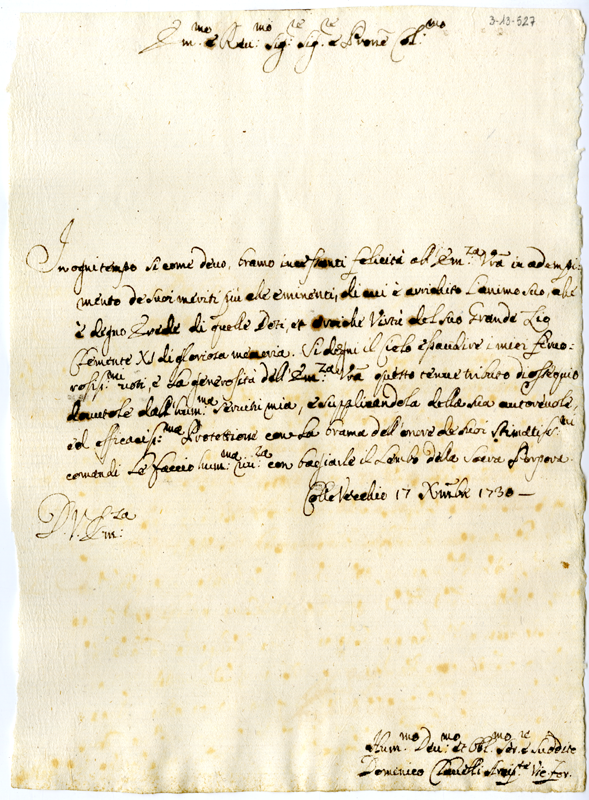 3-13-527
Em.mo e Reu.mo Sig.re Sig.re e Prone Col.mo
In ogni tempo si come deuo, bramo incessanti felicità all'Em.za Vrã in adempi-
mento de suoi meriti più che eminenti, di cui è arrichito L'animo Suo, che
è degno Erede di quelle Doti, et eroiche Virtù del Suo Grande Zio
Clemente XI di gloriosa memoria. Si degni il Cielo esaudire i miei feruo-
rosiss.mi uoti, e la generosità dell'Em.za Vrã questo tenue tributo di ossequio
douutole dall'hum.ma Seruitù mia, e Supplicandola della Sua autoreuole,
ed efficacis.ma Protettione con La brama dell'onore de Suoi Stimatiss.mi
comandi Le faccio hum.ma riu.za con bagiarle il Lembo della Sacra Porpora.
Colle Vecchio 17 Xmbre 1730 —
D V. Em.za
Hum.mo Deu.mo et Obl.mo Ser.re e Suddito
Domenico Arcip.te Vic. for.